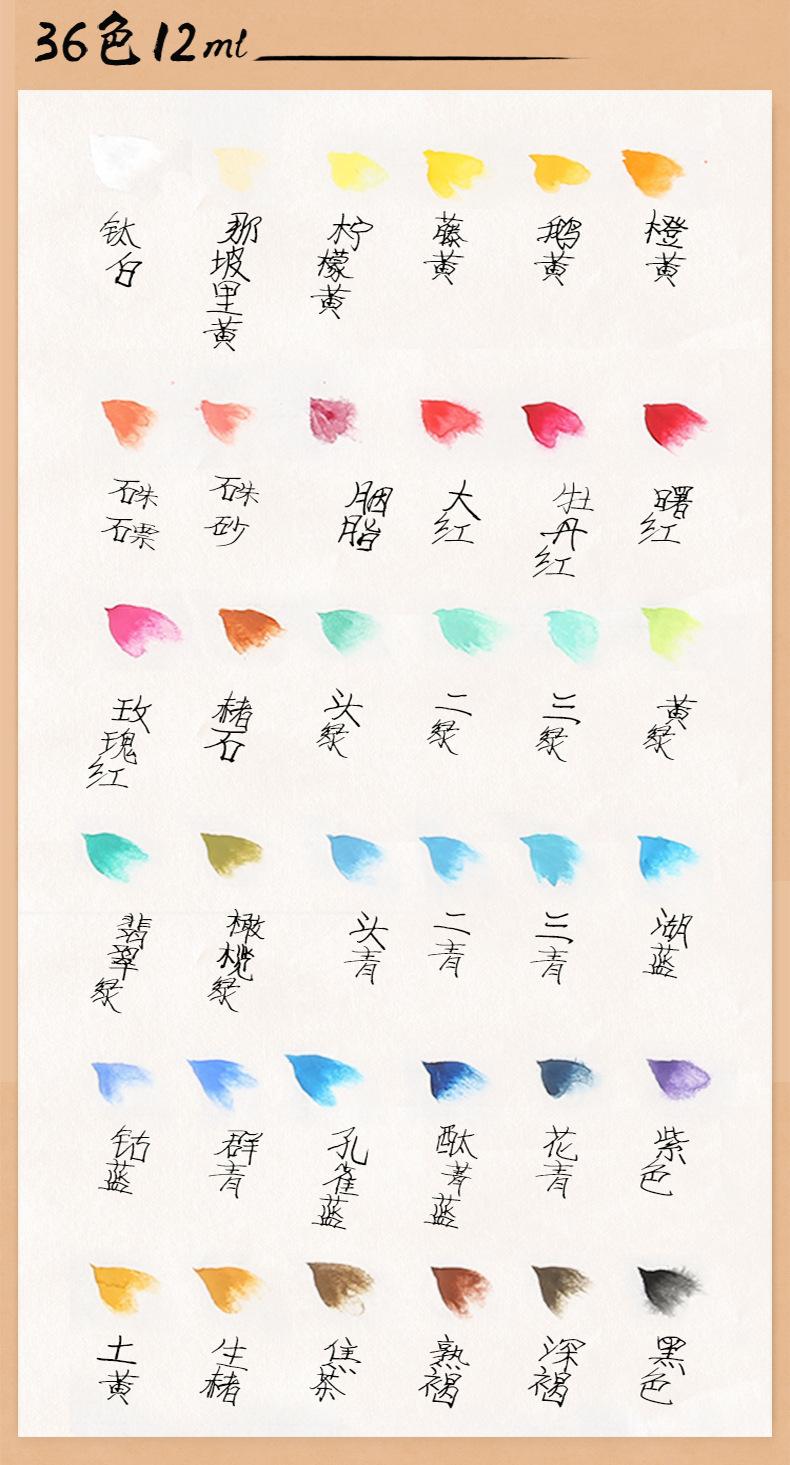 36色12ml
钛白
那坡里黄
柠檬黄
藤黄
鹅黄
橙黄
硃石票
硃砂
胭脂
大红
牡丹红
曙红
玫瑰红
楮石
头绿
二绿
三绿
黄绿
翡翠绿
橄榄绿
头青
二青
三青
湖蓝
钴蓝
群青
孔雀蓝
酞菁蓝
花青
紫色
土黄
生楮
焦茶
熟褐
深褐
黑色